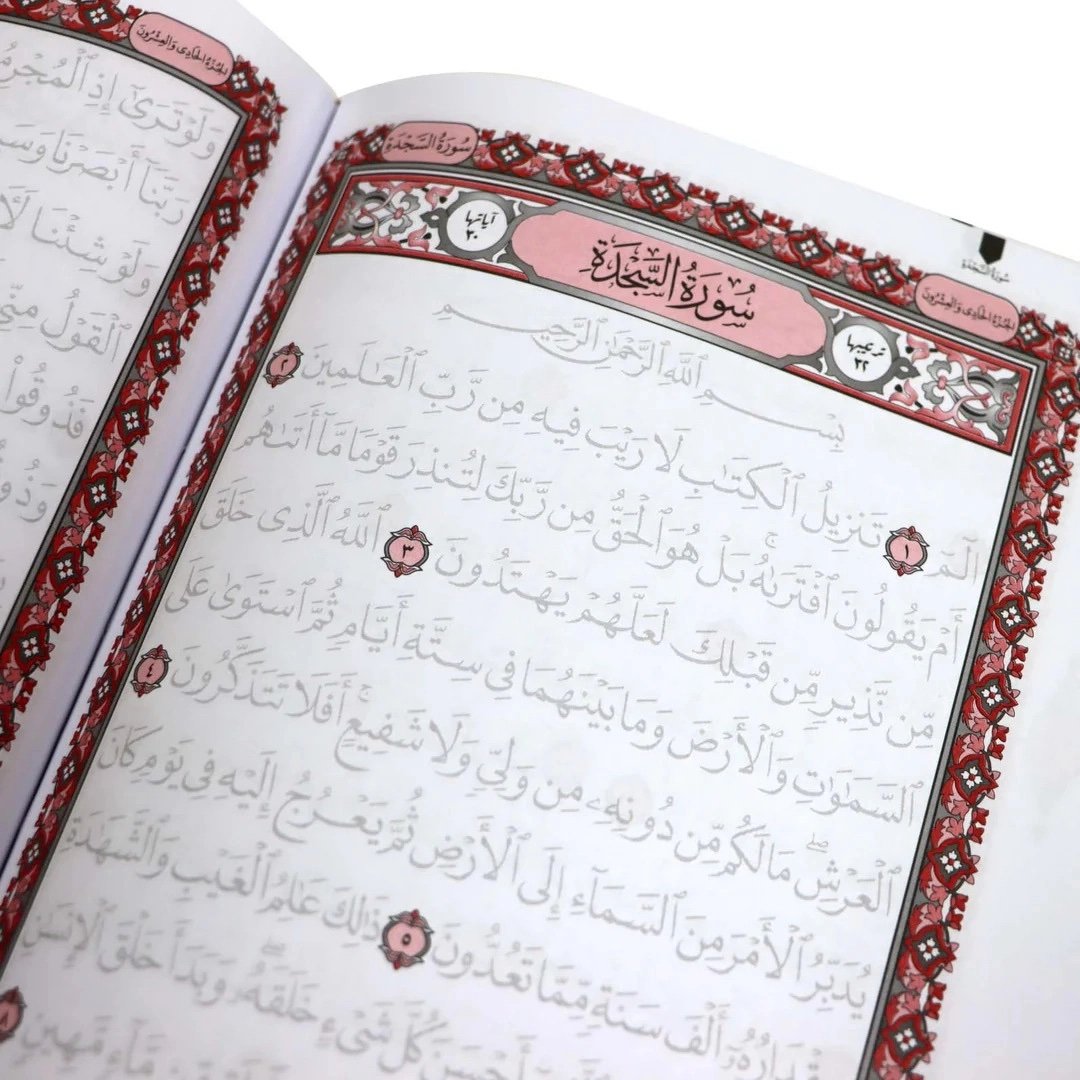 سُورَةُ السَّجْدَةِ
الجُزْءُ الحَادِي وَالعِشْرُونَ
سُورَةُ السَّجْدَةِ
آيَاتُهَا ٣٠
سُورَةُ السَّجْدَةِ
تَرتيبُهَا ٣٢
بِسْمِ ٱللَّهِ ٱلرَّحْمَٰنِ ٱلرَّحِيمِ
الٓمٓ ١ تَنزِيلُ ٱلْكِتَٰبِ لَا رَيْبَ فِيهِ مِن رَّبِّ ٱلْعَٰلَمِينَ ٢
أَمْ يَقُولُونَ ٱفْتَرَىٰهُ ۚ بَلْ هُوَ ٱلْحَقُّ مِن رَّبِّكَ لِتُنذِرَ قَوْمًا مَّآ أَتَىٰهُم
مِّن نَّذِيرٍ مِّن قَبْلِكَ لَعَلَّهُمْ يَهْتَدُونَ ٣ ٱللَّهُ ٱلَّذِى خَلَقَ
ٱلسَّمَٰوَٰتِ وَٱلْأَرْضَ وَمَا بَيْنَهُمَا فِى سِتَّةِ أَيَّامٍ ثُمَّ ٱسْتَوَىٰ عَلَى
ٱلْعَرْشِ ۖ مَا لَكُم مِّن دُونِهِۦ مِن وَلِىٍّ وَلَا شَفِيعٍ ۚ أَفَلَا تَتَذَكَّرُونَ ٤
يُدَبِّرُ ٱلْأَمْرَ مِنَ ٱلسَّمَآءِ إِلَى ٱلْأَرْضِ ثُمَّ يَعْرُجُ إِلَيْهِ فِى يَوْمٍ كَانَ
مِقْدَارُهُۥٓ أَلْفَ سَنَةٍ مِّمَّا تَعُدُّونَ ٥ ذَٰلِكَ عَٰلِمُ ٱلْغَيْبِ وَٱلشَّهَٰدَةِ
أَحْسَنَ كُلَّ شَىْءٍ خَلَقَهُۥ ۖ وَبَدَأَ خَلْقَ ٱلْإِنسَٰنِ
مَّآءٍ مَّهِينٍ ٨
الجُزْءُ الحَادِي وَالعِشْرُونَ
وَلَوْ تَرَىٰٓ إِذِ ٱلْمُجْرِمُ
رَبَّنَآ أَبْصَرْنَا وَسَمِ
وَلَوْ شِئْنَا لَأَ
ٱلْقَوْلُ مِنِّى
فَذُوقُوا۟
وَذُوقُ